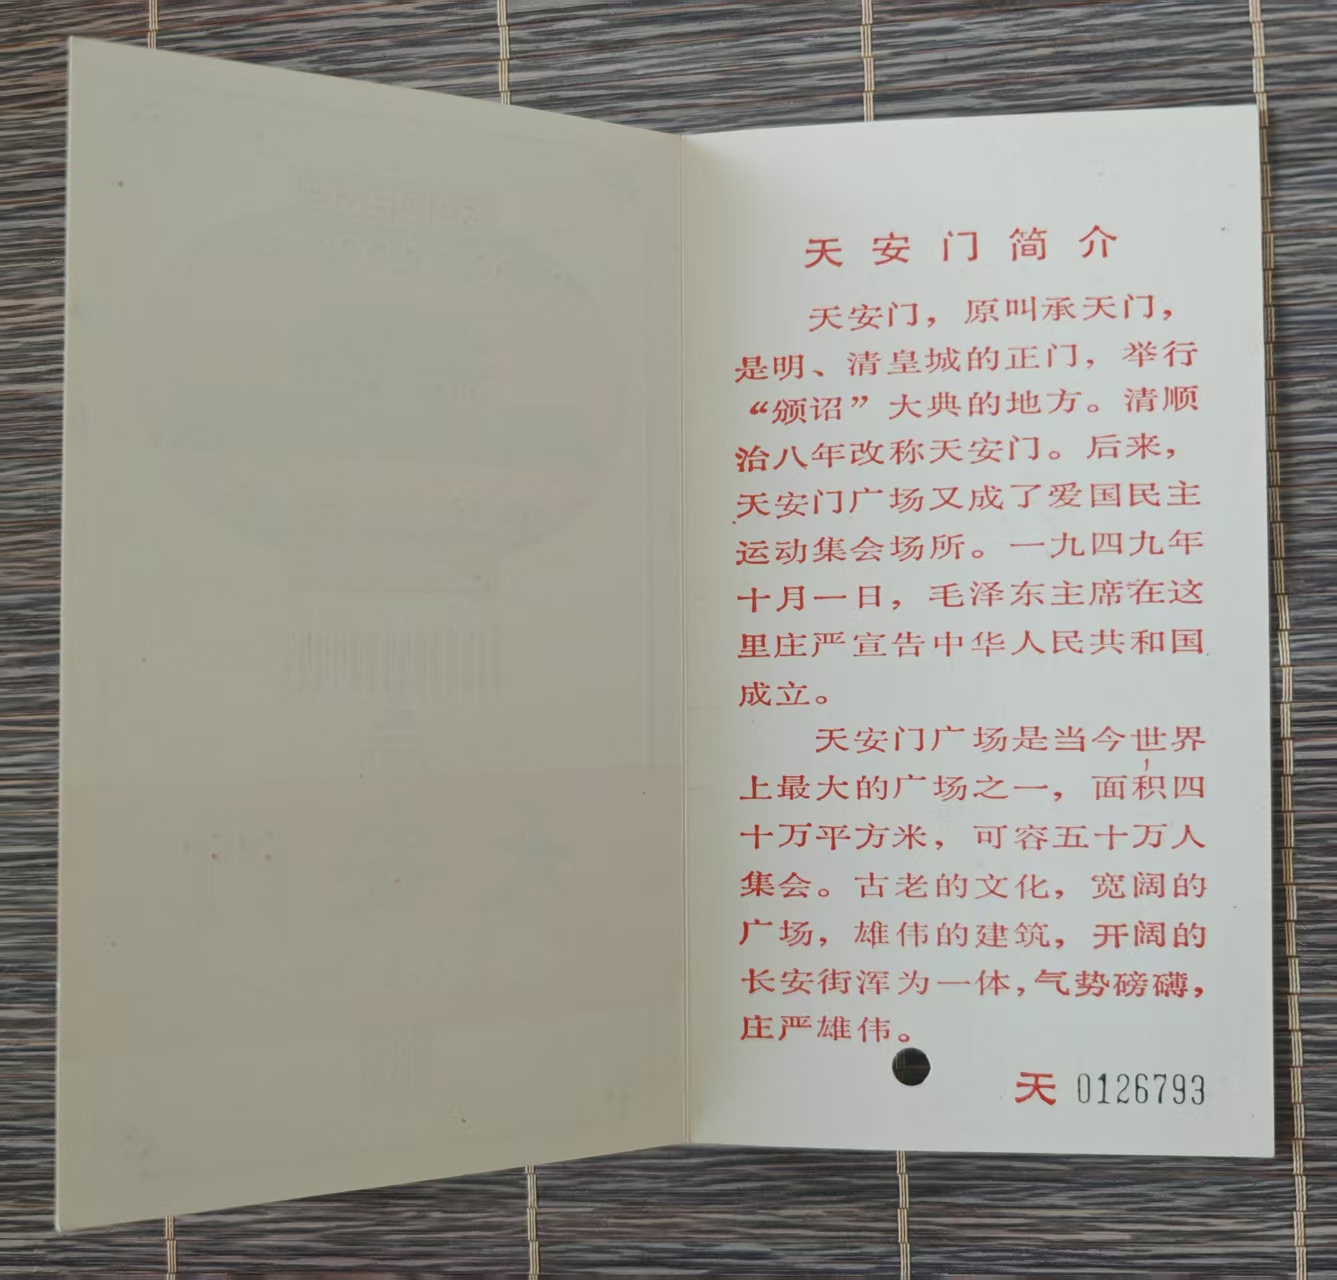 天安门简介
天安门，原叫承天门，
是明、清皇城的正门，举行
“颁诏”大典的地方。清顺
治八年改称天安门。后来，
天安门广场又成了爱国民主
运动集会场所。一九四九年
十月一日，毛泽东主席在这
里庄严宣告中华人民共和国
成立。
天安门广场是当今世界
上最大的广场之一，面积四
十万平方米，可容五十万人
集会。古老的文化，宽阔的
广场，雄伟的建筑，开阔的
长安街浑为一体，气势磅礴，
庄严雄伟。
天 0126793